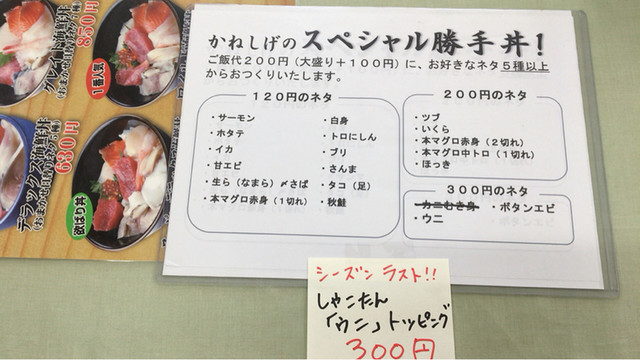 かねしげのスペシャル勝手丼！
ご飯代２００円（大盛り＋１００円）に、お好きなネタ５種以上
からおつくりいたします。
１２０円のネタ
・サーモン
・ホタテ
・イカ
・甘エビ
・生ら（なまら）〆さば
・本マグロ赤身（１切れ）
・白身
・トロにしん
・ブリ
・さんま
・タコ（足）
・秋鮭
２００円のネタ
・ツブ
・いくら
・本マグロ赤身（２切れ）
・本マグロ中トロ（１切れ）
・ほっき
３００円のネタ
・カニむき身
・ボタンエビ
・ウニ
シーズン ラスト!!
しゃこたん
「ウニ」トッピング
300円
グレイト海鮮丼
850円
1番人気
デラックス海鮮丼
630円
欲ばり丼